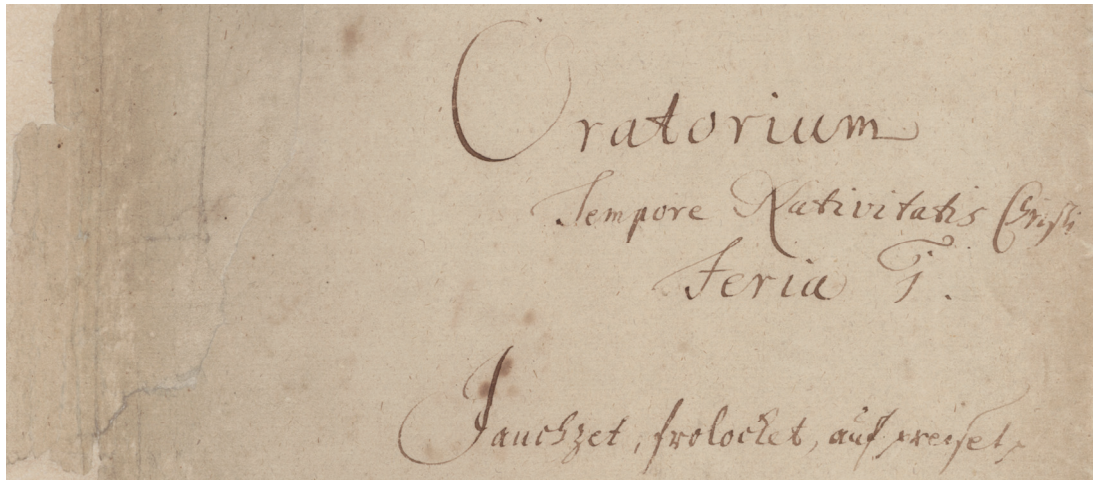 Oratorium
Tempore Nativitatis Christi
Feria I.
Jauchzet, frolocket, auf preiset,